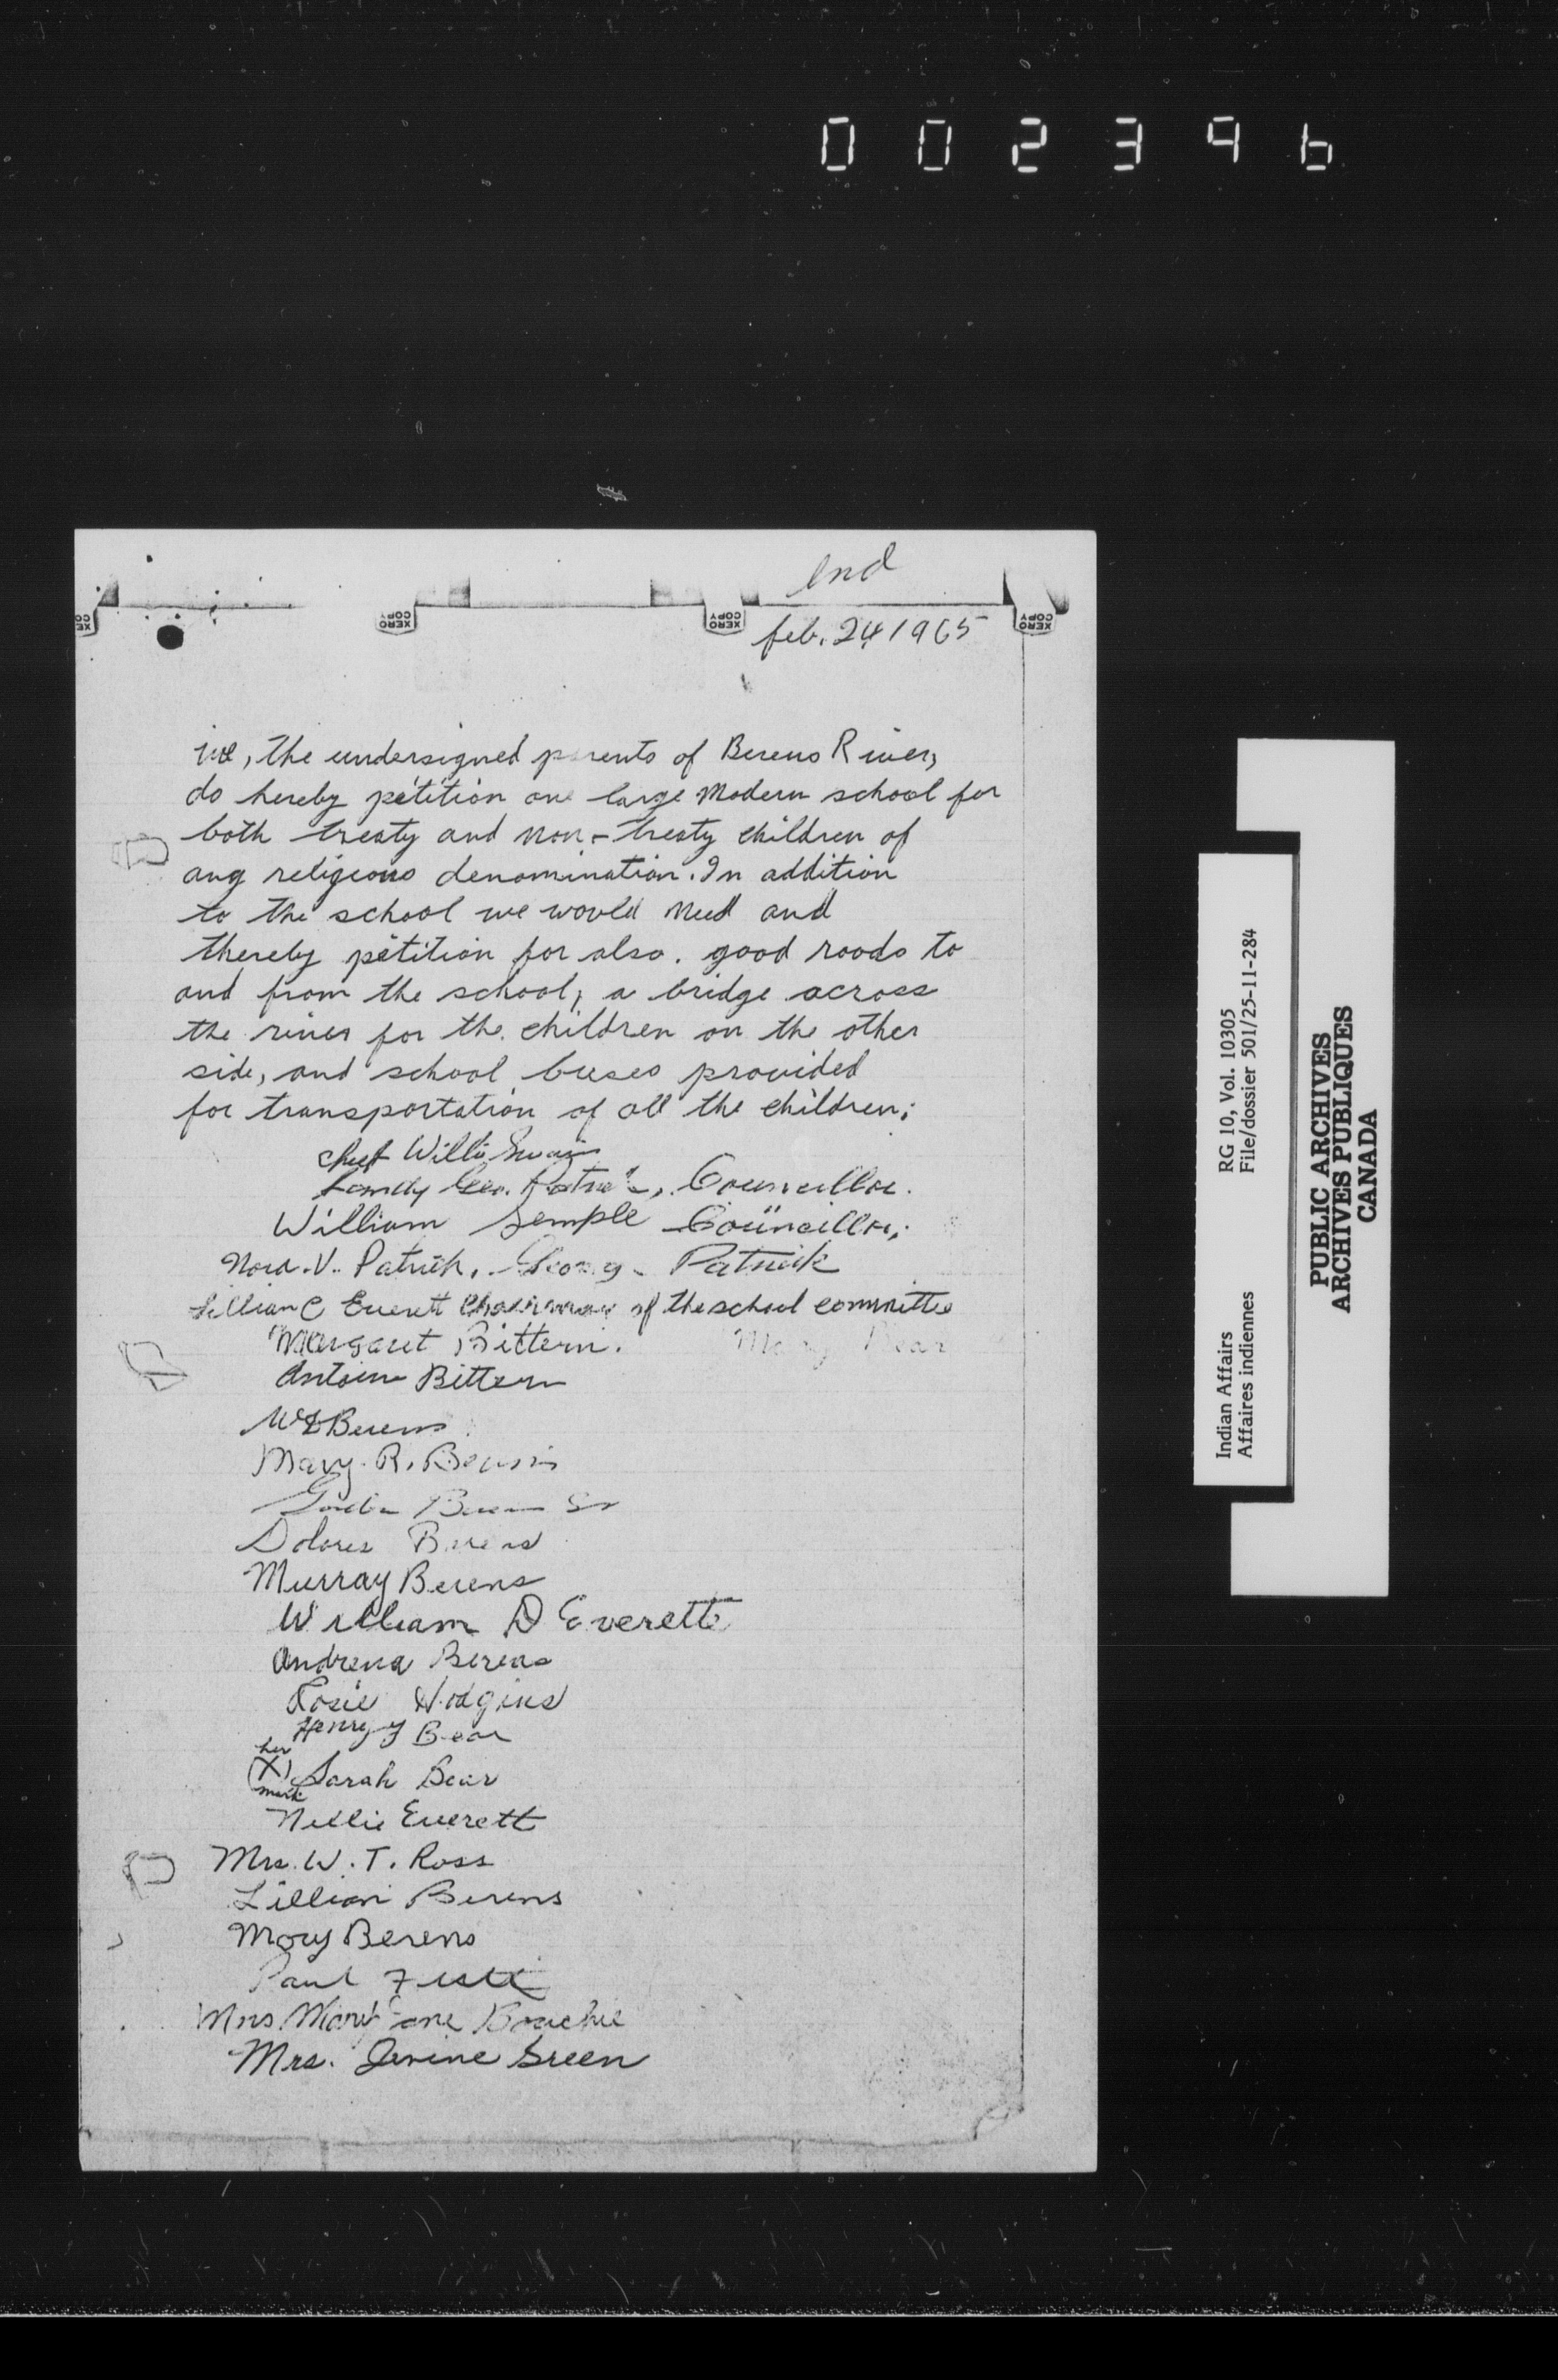 002396
End
XERO COPY
XERO COPY
XERO COPY
feb. 24 1965
we, the undersigned parents of Berens River,
do hereby petition one large modern school for
both treaty and non-treaty children of
any religious denomination. In addition
to the school we would need and
thereby petition for also. good roads to
and from the school, a bridge across
the river for the children on the other
side, and school buses provided
for transportation of all the children;
Chief Willie Swain
Geo. Patrick, Councillor.
William Semple Councillor;
Nora. V. Patrick, George Patrick
Lillian C Everett Chairman of the school committee
Margaret Bittern. Mary Bear
Antoine Bittern
Berens
Mary. R. Berens
Gordon Berens Sr
Dolores Berens
Murray Berens
William D Everette
Andrena Berens
Rosie Hodgins
Henry Bear
her
(X) Sarah Bear
mark
Nellie Everett
Mrs. W. T. Ross
Lillian Berens
Mary Berens
Paul
Mrs. Mary Jane Bouchie
Mrs. Green
Indian Affairs RG 10, Vol. 10305
Affaires indiennes File/dossier 501/25-11-284
PUBLIC ARCHIVES
ARCHIVES PUBLIQUES
CANADA